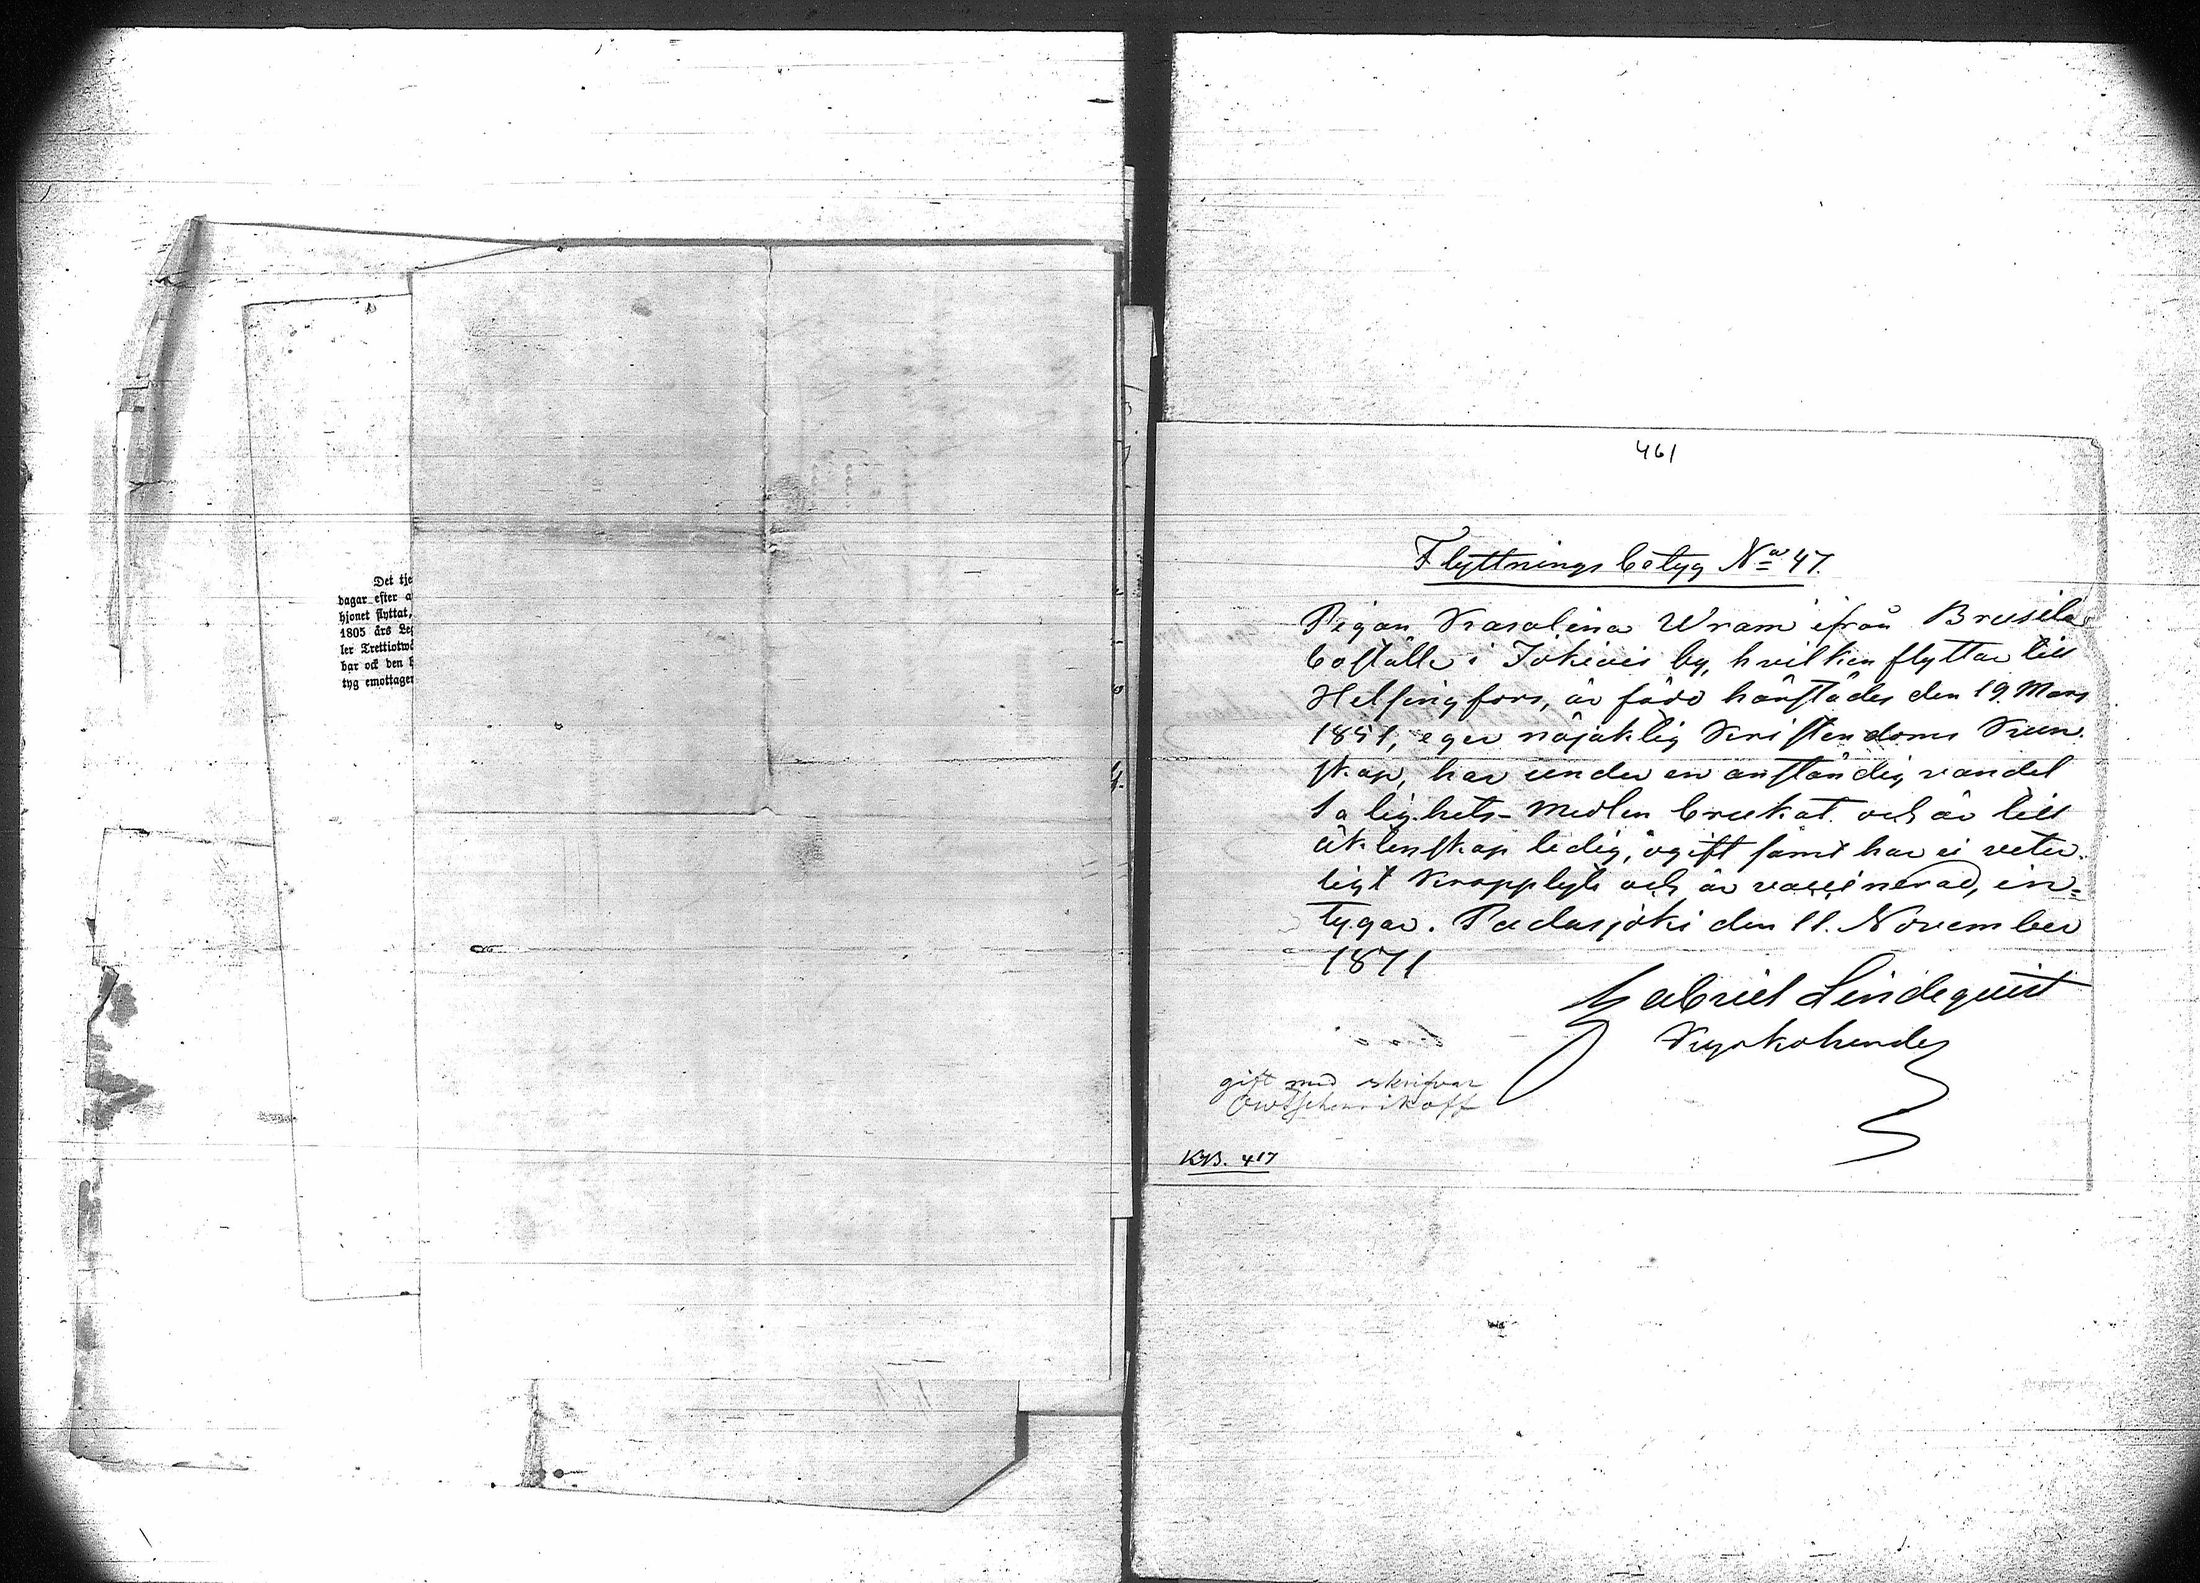 Det tje
dagar efter a
hjonet flyttat,
1805 års Leg
ler Trettiotwå
bar och den h
tyg emottager
461
Flyttnings betyg No 47.
Pigan Karolina Wram ifrån Brusila
boställe i Jokiois by, hvilken flyttar till
Helsingfors, är född härstädes den 19. Mars
1851, eger nöjaktig Kristendoms Kun
skap, har under en anständig vandel
Salighets-medlen brukat och är till
äktenskap ledig, ogift samt har ej veter-
ligt Kropplyte och är vaccinerad, in=
tygar. Padasjoki den 11. November
1871
Gabriel Lindequist
Kyrkoherde
gift med skrifvar
Owtschinnikoff
KB. 417